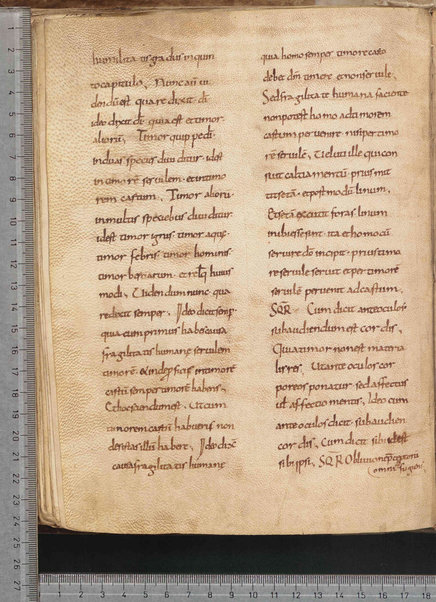 humilitatis gradus in quin
to capitulo. Nunc aũ vi
dendũ est quare dixit dī
ideo dixit dī quia est et timor
aliorũ. Timor quip pedi
in duas species diuiditur idest
in timorẽ seruilem et in timo
rem castum. Timor alioru
in multis speciebus diuiditur
idest timor ignis timor aquę
timor febris timor hominis
timor bestiarum et reliq̃ huius
modi. Uidendum nunc qua
re dicit semper. Ideo dicit semp̱
qua cum primus habes causa
fragilitatis humanę seruilem
timorẽ
castũ semper timorẽ habens.
Et hoc sciendum est. Ut cum
timorem castũ habueris non
deseras illũ habere. Ideo dix̃
causa fragilitatis humanę
quia homo semper timore casto
debet dm̃ timere et non seruile.
Sed fragilitate humana faciente
non potest homo ad timorem
castum peruenire nisi per timo
rẽ seruilẽ. Ueluti ille qui con
suit calciamentũ prius mit
tit setã et post modũ linum.
Et setã exeunte foras linum
inibi est sunt ita et homo cũ
seruire dm̃ incipit prius timo
re seruile seruit et per timorẽ
seruilẽ peruenit ad castum.
SQR̃ Cum dicit ante oculos
subaudiendum est cordis.
Quia timor non est materia
lis res. Ut ante oculos cor
poreos ponatur sed affectus
uł affectio mentis. Ideo cum
ante oculos dicit subaudien
cordis. Cum dicit sibi idest
sibi ipsi. SQR̃ Obliuionẽ
omnino fugiens